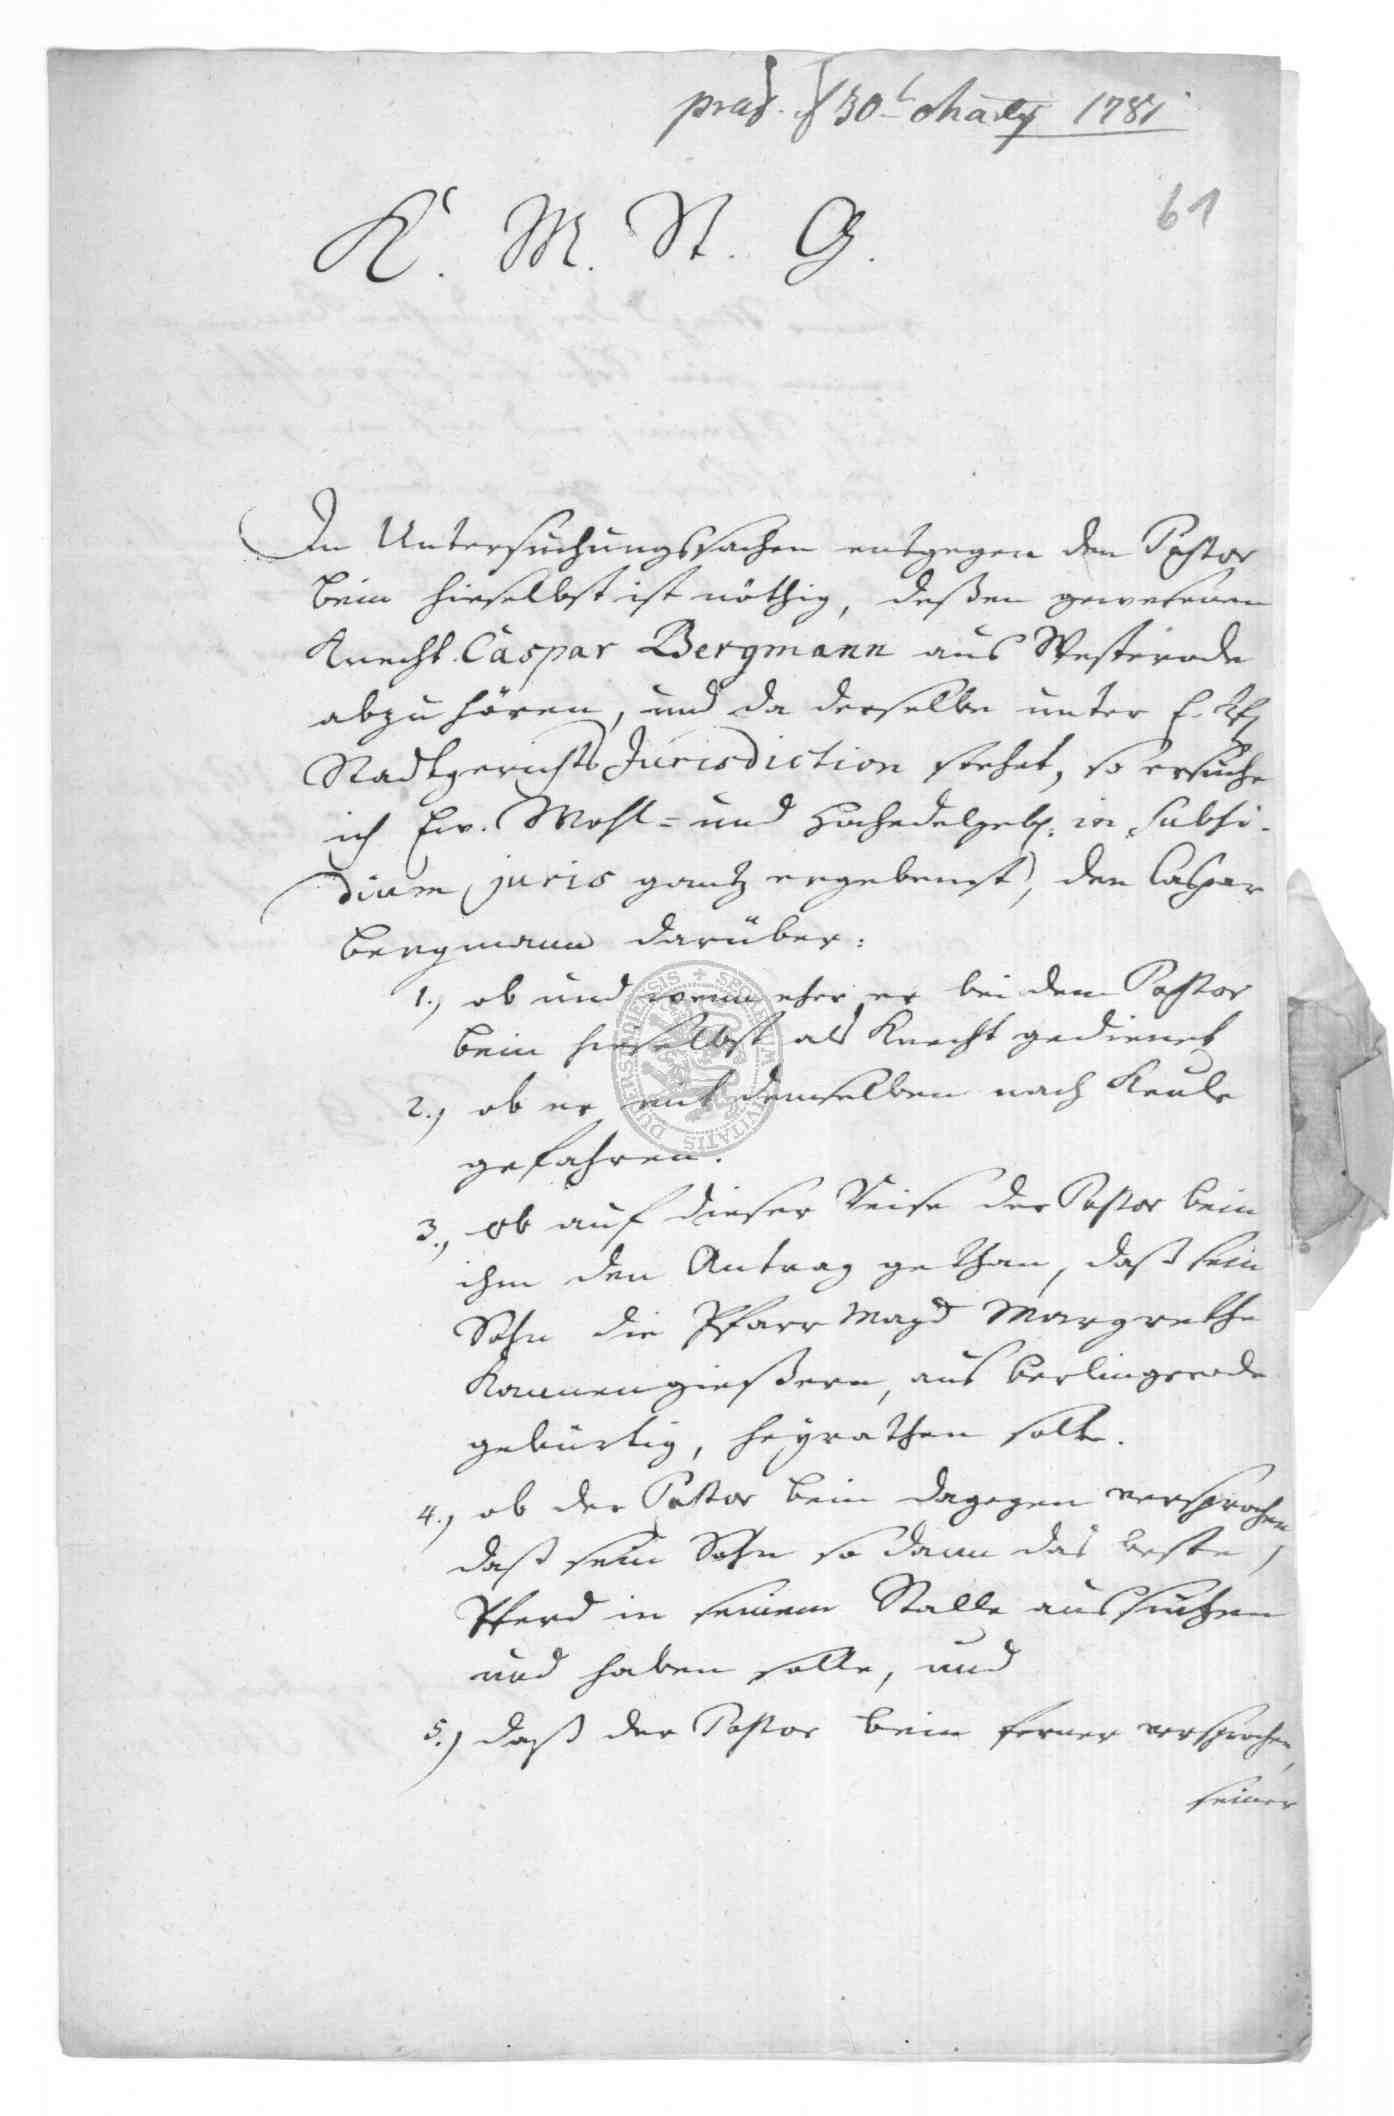 præs. d 30t Maÿ 1781
61
K. M. St. G.
In Untersuchungssachen entgegen den Pastor
Bein hieselbst ist nöthig, deßen gewesenen
Knecht Caspar Bergmann aus Westerode
abzuhören, und da derselbe unter E.
Stadtgerichts Jurisdiction stehet, so ersuche
ich Ew. Wohl- und Hochedelgeb. in subsi-
dium juris gantz ergebenst, den Caspar
Bergmann darüber:
1., ob und wenn eher er bei dem Pastor
Bein hieselbst als Knecht gedienet
2., ob er mit demselben nach Keula
gefahren.
3., ob auf dieser Reise der Pastor Bein
ihm den Antrag gethan, daß sein
Sohn die Pfarr Magd Margrethe
Kannengießern, aus Berlingerode
gebürtig, heÿrathen solle.
4., ob der Pastor Bein dagegen versprochen
daß sein Sohn so dann das beste
Pferd in seinem Stalle aussuchen
und haben solle, und
5.) daß der Pastor Bein ferner versprochen,
seiner
SIGILLUM CIVITATIS DUDERSTADIENSIS